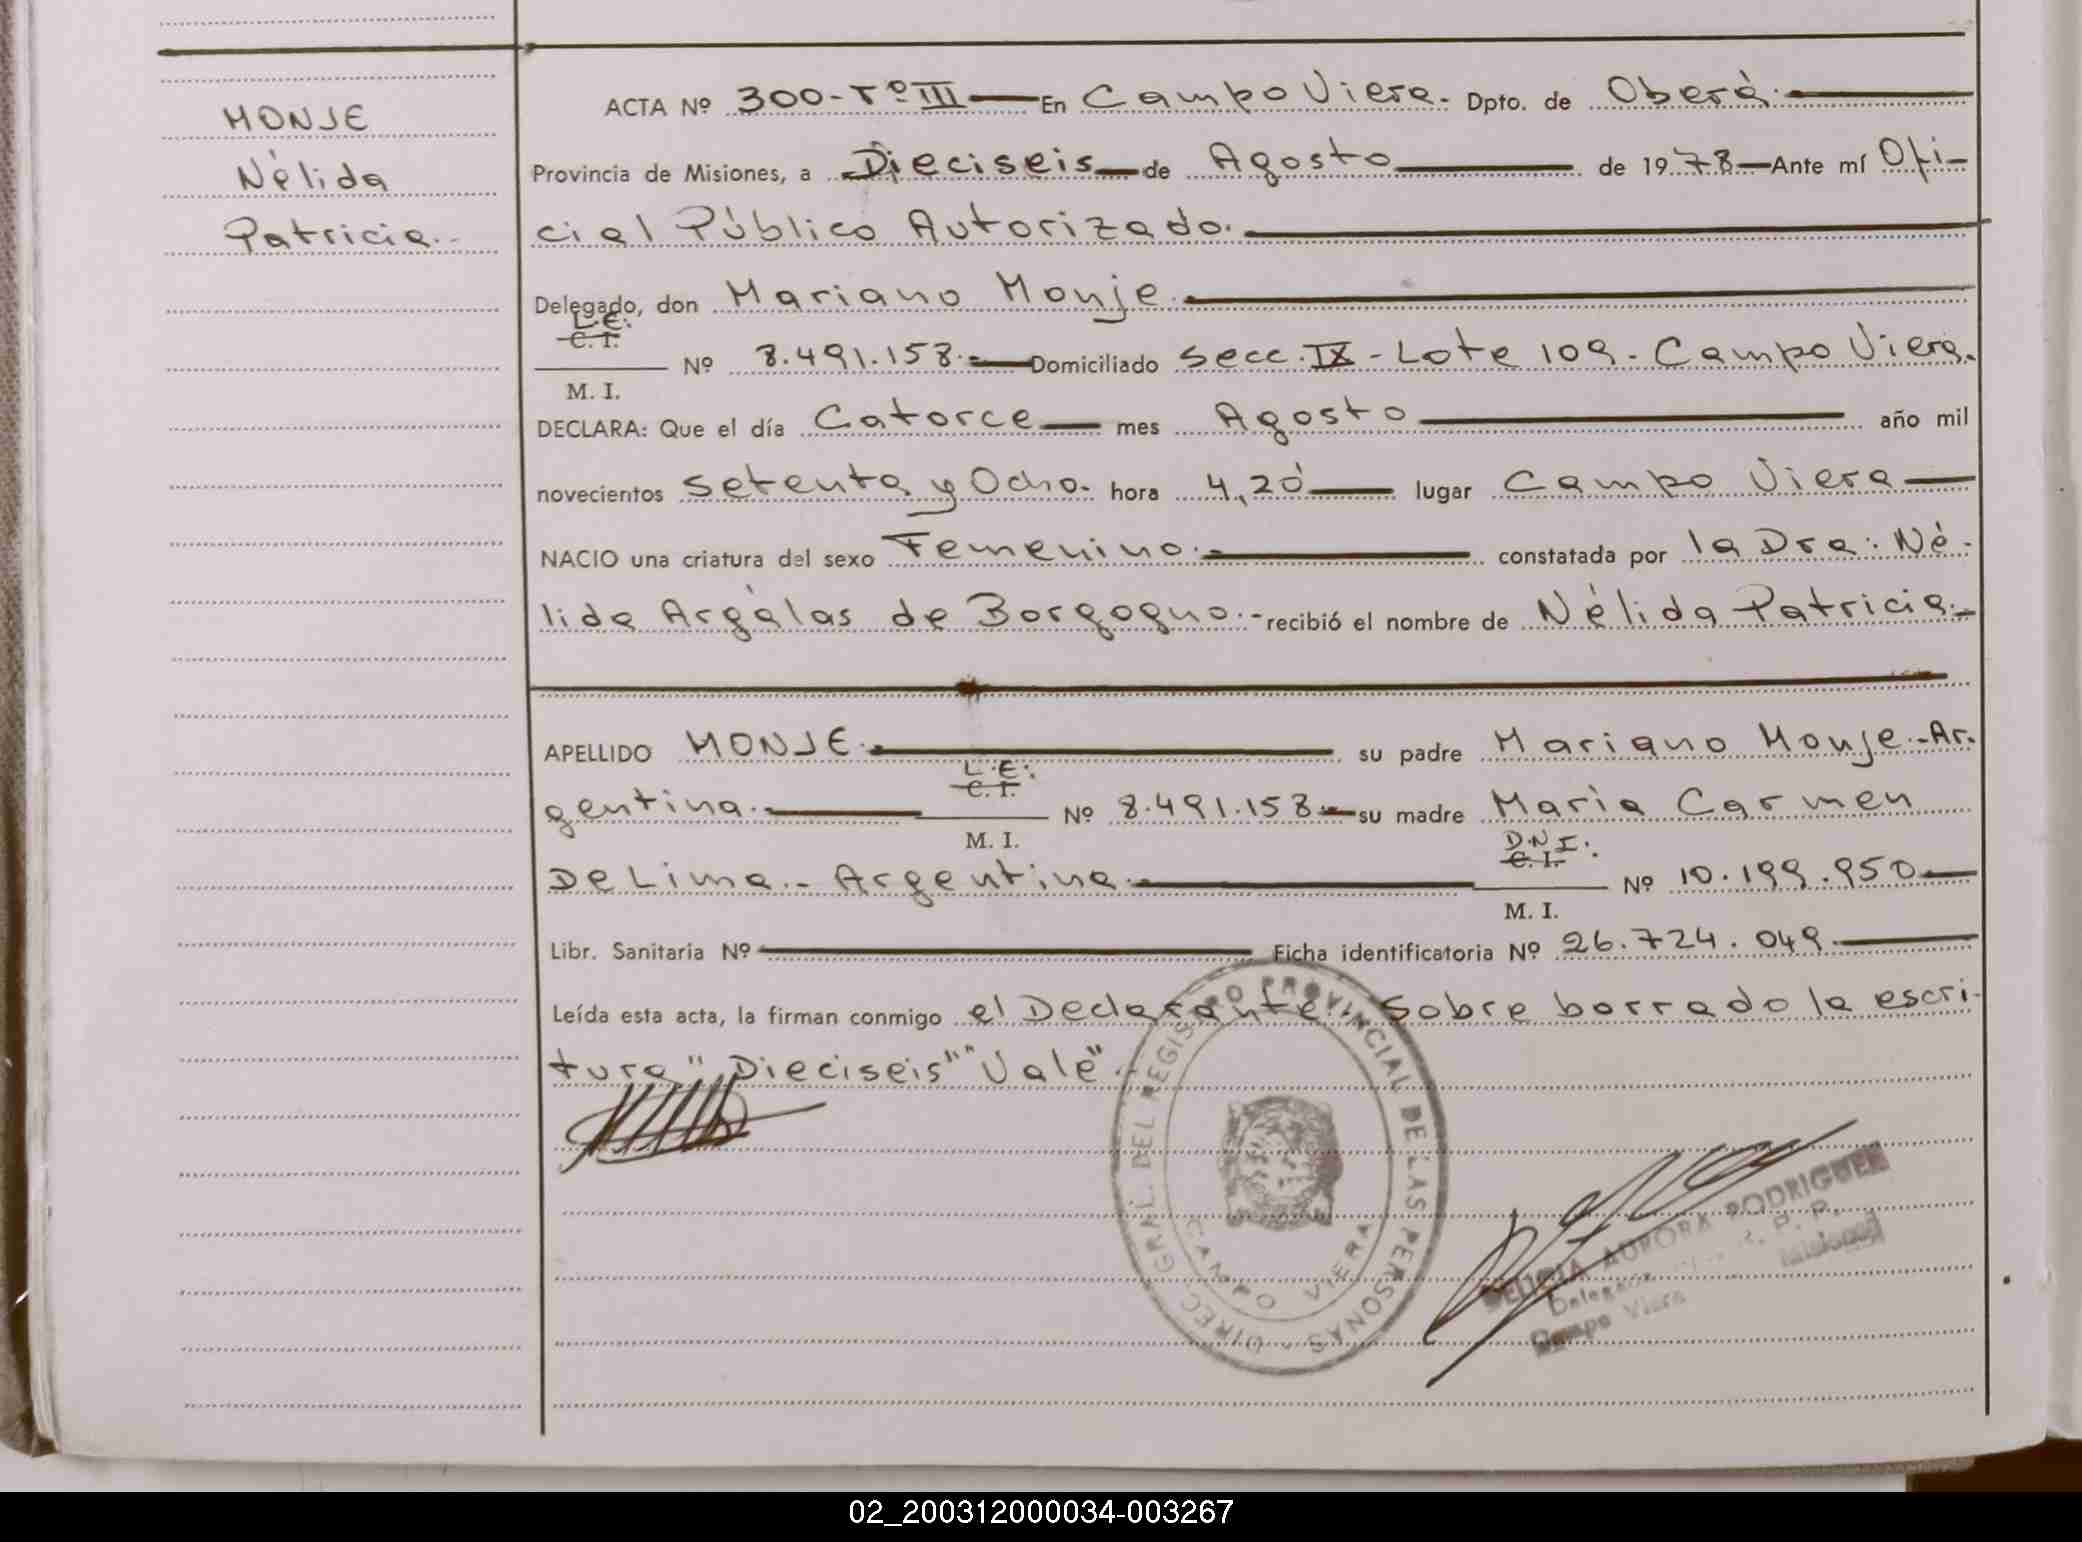 MONJE
Nélida
Patricia.-
ACTA Nº 300-Tº III — En Campo Viera. Dpto. de Oberá.
Provincia de Misiones, a Dieciseis — de Agosto — de 1978 — Ante mí Ofi-
cial Público Autorizado.
Delegado, don Mariano Monje.
L.E.
C. I.
Nº 8.491.158.- Domiciliado Secc. IX - Lote 109. Campo Viera.
M. I.
DECLARA: Que el día Catorce — mes Agosto — año mil
novecientos Setenta y Ocho. hora 4,20 — lugar Campo Viera —
NACIO una criatura del sexo Femenino.- constatada por la Dra. Né-
lida Argálas de Borgogno.- recibió el nombre de Nélida Patricia.-
APELLIDO MONJE.- su padre Mariano Monje.-Ar-
L.E.
C. I.
gentina.- Nº 8.491.158.- su madre María Carmen
M. I.
D.N.I.
C. I.
De Lima.- Argentina.- Nº 10.199.950 —
M. I.
Libr. Sanitaria Nº — Ficha identificatoria Nº 26.724.049.-
Leída esta acta, la firman conmigo el Declarante. Sobre borrado la escri-
tura "Dieciseis" "Vale".
DIREC. GRAL. DEL REGISTRO PROVINCIAL DE LAS PERSONAS
CAMPO VIERA
DELICIA AURORA RODRIGUEZ
Delegada R. P. P.
Campo Viera Misiones
02_200312000034-003267